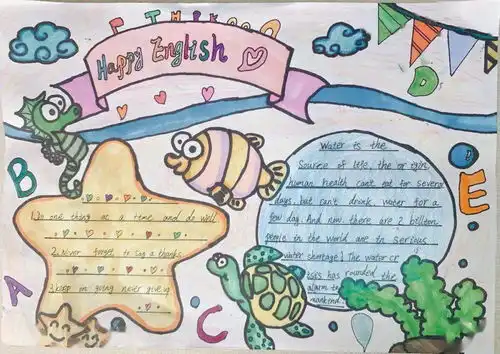 E T H I K
Happy English
D
B
E
A
C
1.Do one thing at a time and do well
2.Never forget to say a thanks
3.keep on going never give up
Water is the
Source of life, the or igin
human health cant eat for several
days, but can't drink water for a
few day. And now there are 2 billion
people in the world are in serious
water shortage] The water cr
isis has rounded the
alarm to
mankind.